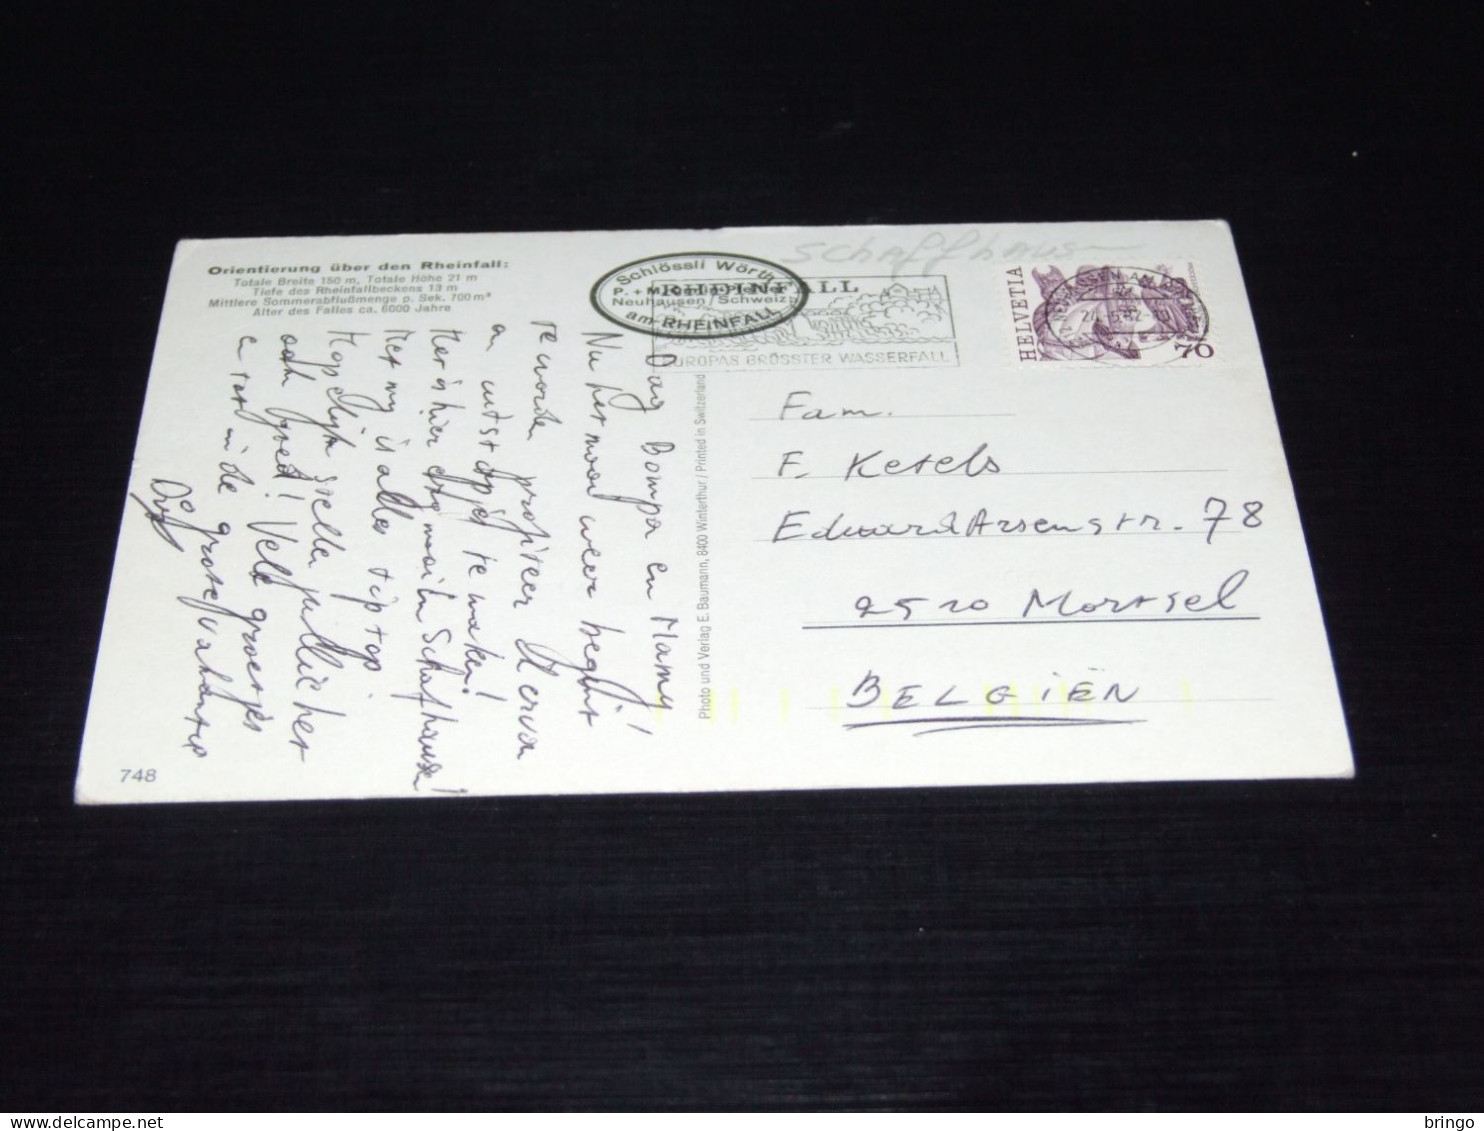 Orientierung über den Rheinfall:
Totale Breite 150 m, Totale Höhe 21 m
Tiefe des Rheinfallbeckens 13 m
Mittlere Sommerabflußmenge p. Sek. 700 m³
Alter des Falles ca. 6000 Jahre
Schlössli Wörth
Neuhausen/Schweiz
am RHEINFALL
RHEINFALL
EUROPAS GRÖSSTER WASSERFALL
Schaffhaus
HELVETIA
70
Dag Bompa en Mamy!
Nu het mooi weer begint
te worden profiteer
uitstapjes te maken!
Het is hier mooi in Schafhause!
Met mij is alles tip top
Hopelijk stellen jullie het
ook goed! Vele groetjes
en tot in de grote vakantie
Photo und Verlag E. Baumann, 8400 Winterthur / Printed in Switzerland
Fam.
F. Ketels
Eduard Arsenstr. 78
2510 Mortsel
BELGIËN
748
bringo